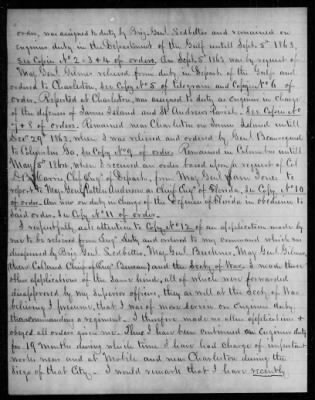 order, was assigned to duty by Brig. Genl. Ledbetter and remained on
engineer duty in the Department of the Gulf untill Sept. 5th 1863,
See Copies No 2 - 3 & 4 of orders. On Sept. 5th 1863 was by request of
Maj. Genl. Gilmer relieved from duty in Depart. of the Gulf and
ordered to Charleston, See Copy No 5 of telegram and Copy No 6 of
order. Reported at Charleston, was assigned to duty as engineer in charge
of the defenses of James Island and St Andrews Parish. See Copies No
7 & 8 of orders. Remained near Charleston on James Island untill
Dec 29th 1863, when I was relieved and ordered by Genl Beauregard
to Columbia Ga. See Copy No 9 of order. Remained in Columbus untill
May 5th 1864, when I received an order based upon a request of Col
Harris Chf. Engr. of Depart., from Maj. Genl Sam Jones to
report to Maj. Genl Patton Anderson as Chief Engr of Florida, See Copy No 10
of order. Am now on duty in charge of the Defenses of Florida in obedience to
Said order. See Copy No 11 of order.
I respectfully ask attention to Copy No 12 of an application made by
me to be relieved from Engr duty and ordered to my command which was
disapproved by Brig. Genl. Ledbetter, Maj. Genl. Buckner, Maj Genl. Gilmer,
(then Col. and Chief of Engr. Bureau) and the Secty of War. I made three
other applications of the same kind, all of which were forwarded
disapproved by my Superior officers, they as well as the Secty of War
believing I presume, that I was of more service on Engineer duty,
than commanding a regiment. I therefore made no other applications &
obeyed all orders given me. Thus I have been continued on Engineer duty
for 19 Months during which time I have had charge of important
works near and at Mobile and near Charleston during the
Siege of that City. I would remark that I have recently